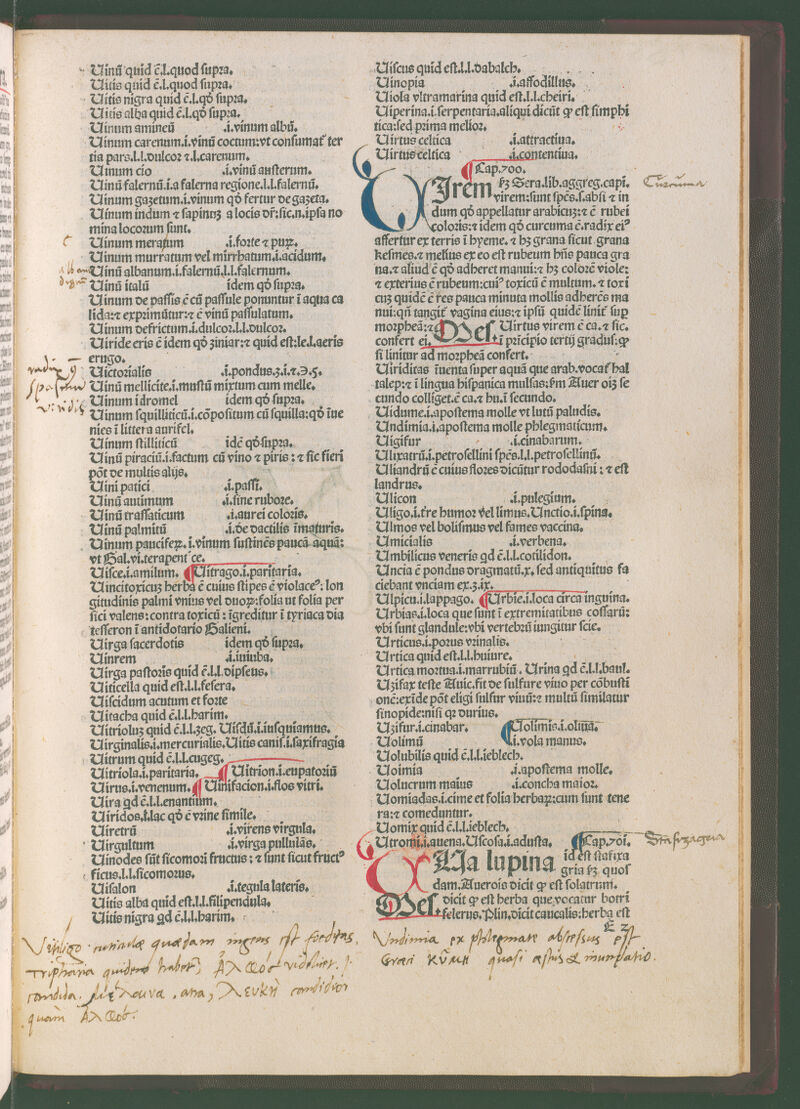 Uinũ quid ẽ.l.quod supra.
Uitis quid ẽ.l.quod supra.
Uitis nigra quid ẽ.l.qđ supra.
Uitis alba quid ẽ.l.qđ supra.
Uinum amineũ .i.vinum albũ.
Uinum carenum.i.vinũ coctum:vt consumať ter
tia pars.l.l.dulcor ⁊.l.carenum.
Uinum cio .i.vinũ austerum.
Uinũ falernũ.i.a falerna regione.l.l.falernũ.
Uinum gazetum.i.vinum qđ fertur de gazeta.
Uinum indum ⁊ sapinuꝫ a locis dr̃:sic.n.ipsa no
mina locorum sunt.
Uinum meratum .i.forte ⁊ puꝝ.
Uinum murratum vel mirrhatum.i.acidum.
Uinum albanum.i.falernũ.l.l.falernum.
Uinũ italũ idem qđ supra.
Uinum de passis ẽ cũ passule ponuntur ĩ aqua ca
lida:⁊ exprimũtur:⁊ ẽ vinũ passulatum.
Uinum defrictum.i.dulcor.l.l.dulcor.
Uiride eris ẽ idem qđ ziniar:⁊ quid est:le.l.aeris
erugo.
Uictorialis .i.pondus.ʒ.i.⁊.℈.5.
Uinũ mellicite.i.mustũ mixtum cum melle.
Uinum idromel idem qđ supra.
Uinum squilliticũ.i.cõpositum cũ squilla:qđ ĩue
nies ĩ littera aurifel.
Uinum stilliticũ idẽ qđ supra.
Uinũ piraciũ.i.factum cũ vino ⁊ piris:⁊ sic fieri
põt de multis alijs.
Uini patici .i.passi.
Uinũ autimum .i.sine rubore.
Uinũ trassaticum .i.aurei coloris.
Uinũ palmitũ .i.de dactilis ĩmaturis.
Uinum paucifeꝝ.i.vinum sustinẽs paucã aquã:
vt Gal.vi.terapentice.
Uisce.i.amilum. ¶Uitrago.i.paritaria.
Uincitoxicuꝫ herba ẽ cuius stipes ẽ violaceꝰ:lon
gitudinis palmi vnius vel duoꝝ:folia vt folia per
sici valens:contra toxicũ:ĩgreditur ĩ tyriaca dia
tesseron ĩ antidotario Galieni.
Uirga sacerdotis idem qđ supra.
Uinrem .i.iuiuba.
Uirga pastoris quid ẽ.l.l.dipseus.
Uiticella quid est.l.l.fesera.
Uiscidum acutum et forte
Uitacha quid ẽ.l.l.harim.
Uitrioluꝫ quid ẽ.l.l.zeg. Uisdũ.i.iusquiamus.
Uirginalis.i.mercurialis.Uitis canis.i.saxifragia
Uitrum quid ẽ.l.l.cugeg.
Uitriola.i.paritaria. ¶Uitrion.i.eupatoriũ
Uirus.i.venenum. ¶Uinifacion.i.flos vitri.
Uira qd ẽ.l.l.enantium.
Uiridos.i.lac qđ ẽ vrine simile.
Uiretrũ .i.virens virgula.
Uirgultum .i.virga pullulãs.
Uinodes sũt sicomori fructus:⁊ sunt sicut fructꝰ
ficus.l.l.sicomorus.
Uisalon .i.tegula lateris.
Uitis alba quid est.l.l.filipendula.
Uitis nigra qd ẽ.l.l.harim.
Uiscus quid est.l.l.dabalch.
Uinopia .i.affodillus.
Uiola vltramarina quid est.l.l.cheiri.
Uiperina.i.serpentaria.aliqui dicũt ꝙ est simphi
tica:sed prima melior.
Uirtus celtica .i.attractiua.
Uirtus celtica .i.contentiua.
¶Cap.700.
UIrem ẜꝫ Sera.lib.aggreg.capi.
virem:sunt spẽs.s.absi ⁊ in
dum qđ appellatur arabicuꝫ:⁊ ẽ rubei
coloris:⁊ idem qđ curcuma ẽ.radix eiꝰ
affertur ex terris ĩ hyeme.⁊ hꝫ grana sicut grana
kesmes.⁊ melius ex eo est rubeum hñs pauca gra
na.⁊ aliud ẽ qđ adheret manui:⁊ hꝫ colorẽ viole:
⁊ exterius ẽ rubeum:cuiꝰ toxicũ ẽ multum.⁊ toxi
cuꝫ quidẽ ẽ res pauca minuta mollis adherẽs ma
nui:qñ tangiť vagina eius:⁊ ipsũ quidẽ liniť sup
morpheã:⁊ Uirtus virem ẽ ca.⁊ sic.
confert ei. Ues. ĩ prĩcipio tertij gradus:ꝙ
si linitur ad morpheã confert.
Uiriditas ĩuenta super aquã que arab.vocaťhal
talep:⁊ ĩ lingua hispanica mulsas:ẜm Auer oiꝫ se
cundo colliget.ẽ ca.⁊ hu.ĩ secundo.
Uidume.i.apostema molle vt lutũ paludis.
Undimia.i.apostema molle phlegmaticum.
Uigifur .i.cinabarum.
Ulixatrũ.i.petrosellini spẽs.l.l.petrosellinũ.
Uliandrũ ẽ cuius flores dicũtur rododafni:⁊ est
landrus.
Ulicon .i.pulegium.
Uligo.i.tr̃e humor vel limus.Unctio.i.spina.
Ulmos vel bolismus vel fames vaccina.
Umicialis .i.verbena.
Umbilicus veneris qd ẽ.l.l.cotilidon.
Uncia ẽ pondus dragmatũ.x.sed antiquitus fa
ciebant vnciam ex.ʒ.ix.
Ulpicu.i.lappago. ¶Urbie.i.loca circa inguina.
Urbias.i.loca que sunt ĩ extremitatibus cossarũ:
vbi sunt glandule:vbi vertebrũ iungitur scie.
Urticus.i.porus vrinalis.
Urtica quid est.l.l.huiure.
Urtica mortua.i.marrubiũ. Urina qd ẽ.l.l.baul.
Uzifax teste Auic.fit de sulfure viuo per cõbusti
onẽ:exĩde põt eligi sulfur viuũ:⁊ multũ similatur
sinopide:nisi qꝫ durius.
Uzifur.i.cinabar. ¶Uolimis.i.oliua.
Uolimũ .i.vola manus.
Uolubilis quid ẽ.l.l.ieblech.
Uoimia .i.apostema molle.
Uolucrum maius .i.concha maior.
Uomiadas.i.cime et folia herbaꝝ:cum sunt tene
ra:⁊ comeduntur.
Uomix quid ẽ.l.l.ieblech.
Utromi.i.auena.Uscosa.i.adusta. ¶Cap.701.
UUa lupina id est stafixa
gria ẜꝫ quos
dam.Auerois dicit ꝙ est solatrum.
Ues. dicit ꝙ est herba que vocatur botri
felerus.Plin.dicit caucalis:herba est
E z
Curcuma
radix 9
viridis
Stafzageia
Vitiligo cuticulæ quædam ingens est foeditas.
candida. Μέλαινα, atra, Λευκὴ candidior
quam
Undimia ex phlegmate abscessus est
Graeci quasi æstus &amp; inundatio.